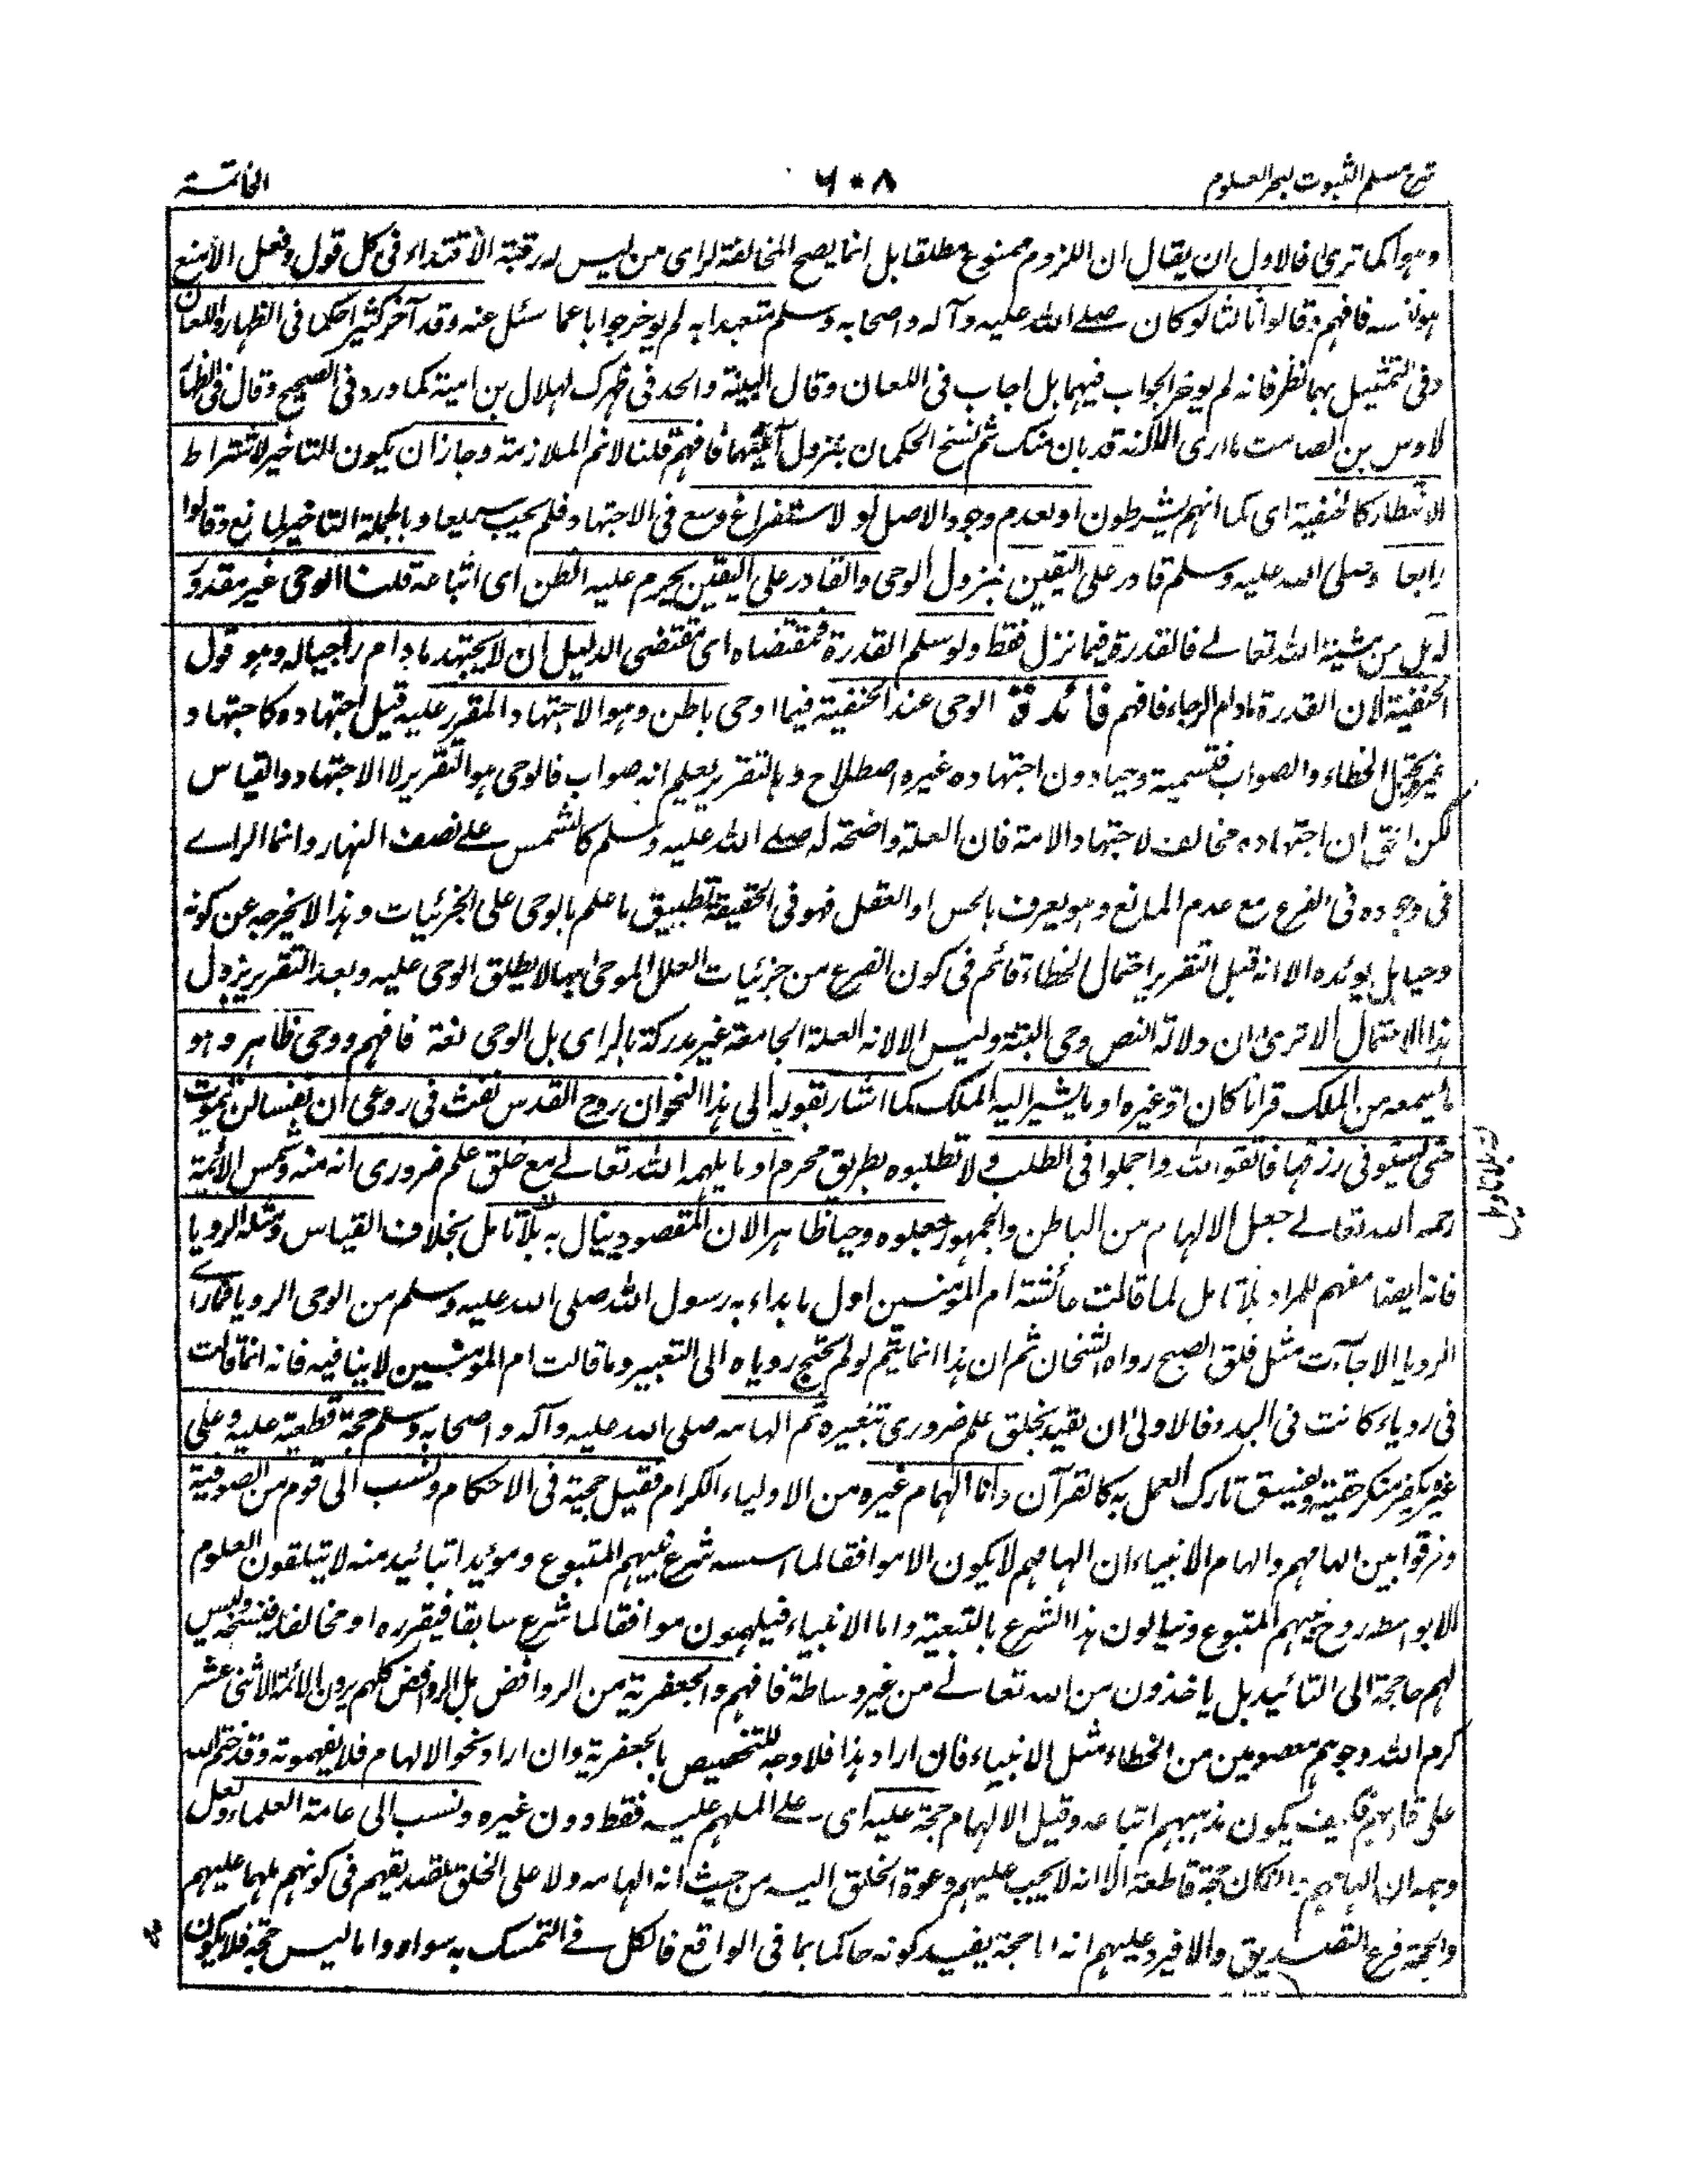 شرح مسلم الثبوت لبحر العلوم
٦٠٨
الخاتمة
وهو كما ترى فالاولى ان يقال ان اللزوم ممنوع مطلقا بل انما يصح المخالفة لراى من ليس له رتبة الاقتداء فى كل قول وفعل الا بنع
هو نفسه فافهم وقالوا ثالثا لو كان صلى الله عليه وآله واصحابه وسلم متعبدا به لم يوخر جوابا عما سئل عنه وقد آخر كثيرا كما فى الظهار واللعان
وفى التمثيل بهما نظر فانه لم يوخر الجواب فيهما بل اجاب فى اللعان وقال البينة والحد فى ظهرك لهلال بن امية كما ورد فى الصحيح وقال فى الظهار
لاوس بن الصامت ما ارى الا انه قد بان منك ثم نسخ الحكمان بنزول آيتيهما فافهم قلنا لا نم الملازمة وجاز ان يكون للتاخير لاشتراط
الانتظار كالحنفية اى كما انهم يشرطون او لعدم وجود الاصل او لاستفراغ وسع فى الاجتهاد فلم يجب سريعا وبالجملة التاخير لمانع وقالوا
رابعا وصلى الله عليه وسلم قادر على اليقين بنزول الوحى والقادر على اليقين يحرم عليه الظن اى اتباعه قلنا الوحى غير مقدور
له بل من مشية الله تعالى فالقدرة فيما نزل فقط ولو سلم القدرة فمقتضاه اى مقتضى الدليل ان لا يجتهد ما دام راجيا له وهو قول
الحنفية لان القدرة ما دام الرجاء فافهم فائدة الوحى عند الحنفية فيما اوحى باطن وهو الاجتهاد المقرر عليه قيل اجتهاده كاجتهاد
غيره يحتمل الخطاء والصواب فتسمية وحيا دون اجتهاده غيره اصطلاح وبالتقرير يعلم انه صواب فالوحى هو التقرير لا الاجتهاد والقياس
لكن الحق ان اجتهاده مخالف لاجتهاد الامة فان العلة واضحة له صلى الله عليه وسلم كالشمس على نصف النهار وانما الراى
فى وجوده فى الفرع مع عدم المانع وهو يعرف بالحس او العقل فهو فى الحقيقة تطبيق ما علم بالوحى على الجزئيات وهذا لا يخرجه عن كونه
وحيا بل يوئده الا انه قبل التقرير احتمال الخطاء قائم فى كون الفرع من جزئيات العلل الموحى بها لا يطلق الوحى عليه وبعد التقرير يزول
هذا الاحتمال الا ترى ان دلالة النص وحى البتة وليس الا لانه العلة الجامعة غير مدركة بالراى بل الوحى لغة فافهم ووحى ظاهر وهو
ما يسمعه من الملك قرانا كان او غيره او ما يشير اليه الملك كما اشار بقوله الى هذا النحو ان روح القدس نفث فى روعى ان نفسا لن تموت
حتى تستوفى رزقها فاتقوا الله واجملوا فى الطلب ولا تطلبوه بطريق محرم او ما يلهمه الله تعالى مع خلق علم ضرورى انه منه وشمس الائمة
رحمه الله تعالى جعل الالهام من الباطن والجمهور جعلوه وحيا ظاهرا لان المقصود ينال به بلا تامل بخلاف القياس ومثله الرويا
فانه ايضا مفهم للمراد بلا تامل لما قالت عائشة ام المؤمنين اول ما بداء به رسول الله صلى الله عليه وسلم من الوحى الرويا فما راى
الرويا الا جاءت مثل فلق الصبح رواه الشيخان ثم ان هذا انما يتم لو لم يحتج روياه الى التعبير وما قالت ام المؤمنين لا ينافيه فانه انما قالت
فى روياء كانت فى البدء فالاولى ان يقيد بخلق علم ضرورى تبعبيره ثم الهامه صلى الله عليه وآله واصحابه وسلم حجة قطعية عليه وعلى
غيره يكفر منكر حقيته ويفسق تارك العمل به كالقرآن واما الهام غيره من الاولياء الكرام فقيل حجة فى الاحكام ونسب الى قوم من الصوفية
وفرقوا بين الهامهم والهام الانبياء ان الهامهم لا يكون الا موافقا لما اسسه شرع نبيهم المتبوع ومؤيدا بتائيد منه لا يتلقون العلوم
الا بواسطة روح نبيهم المتبوع وينالون هذا الشرع بالتبعية واما الانبياء فيلهمون موافقا لما شرع سابقا فيقرره او مخالفا فينسخه وليس
لهم حاجة الى التائيد بل ياخذون من الله تعالى من غير وساطة فافهم والجعفرية من الروافض بل الروافض كلهم يرون الائمة الاثنى عشر
كرم الله وجوههم معصومين من الخطاء مثل الانبياء فان اراد هذا فلا وجه للتخصيص بالجعفرية وان اراد نحو الالهام فلا يفهمونه وقد ختم الله
على قلوبهم فكيف يكون مذهبهم اتباعه وقيل الالهام حجة عليه اى على الملهم عليه فقط دون غيره ونسب الى عامة العلماء ولعل
وجهه ان الهامهم وان كان حجة قاطعة الا انه لا يجب عليهم دعوة الخلق اليه من حيث انه الهامه ولا على الخلق تصديقهم فى كونهم ملهما عليهم
والحجة فرع التصديق والا فيرد عليهم انه اما حجة يفيد كونه حاكما بما فى الواقع فالكل فى التمسك به سواء واما ليس حجة فلا يكون